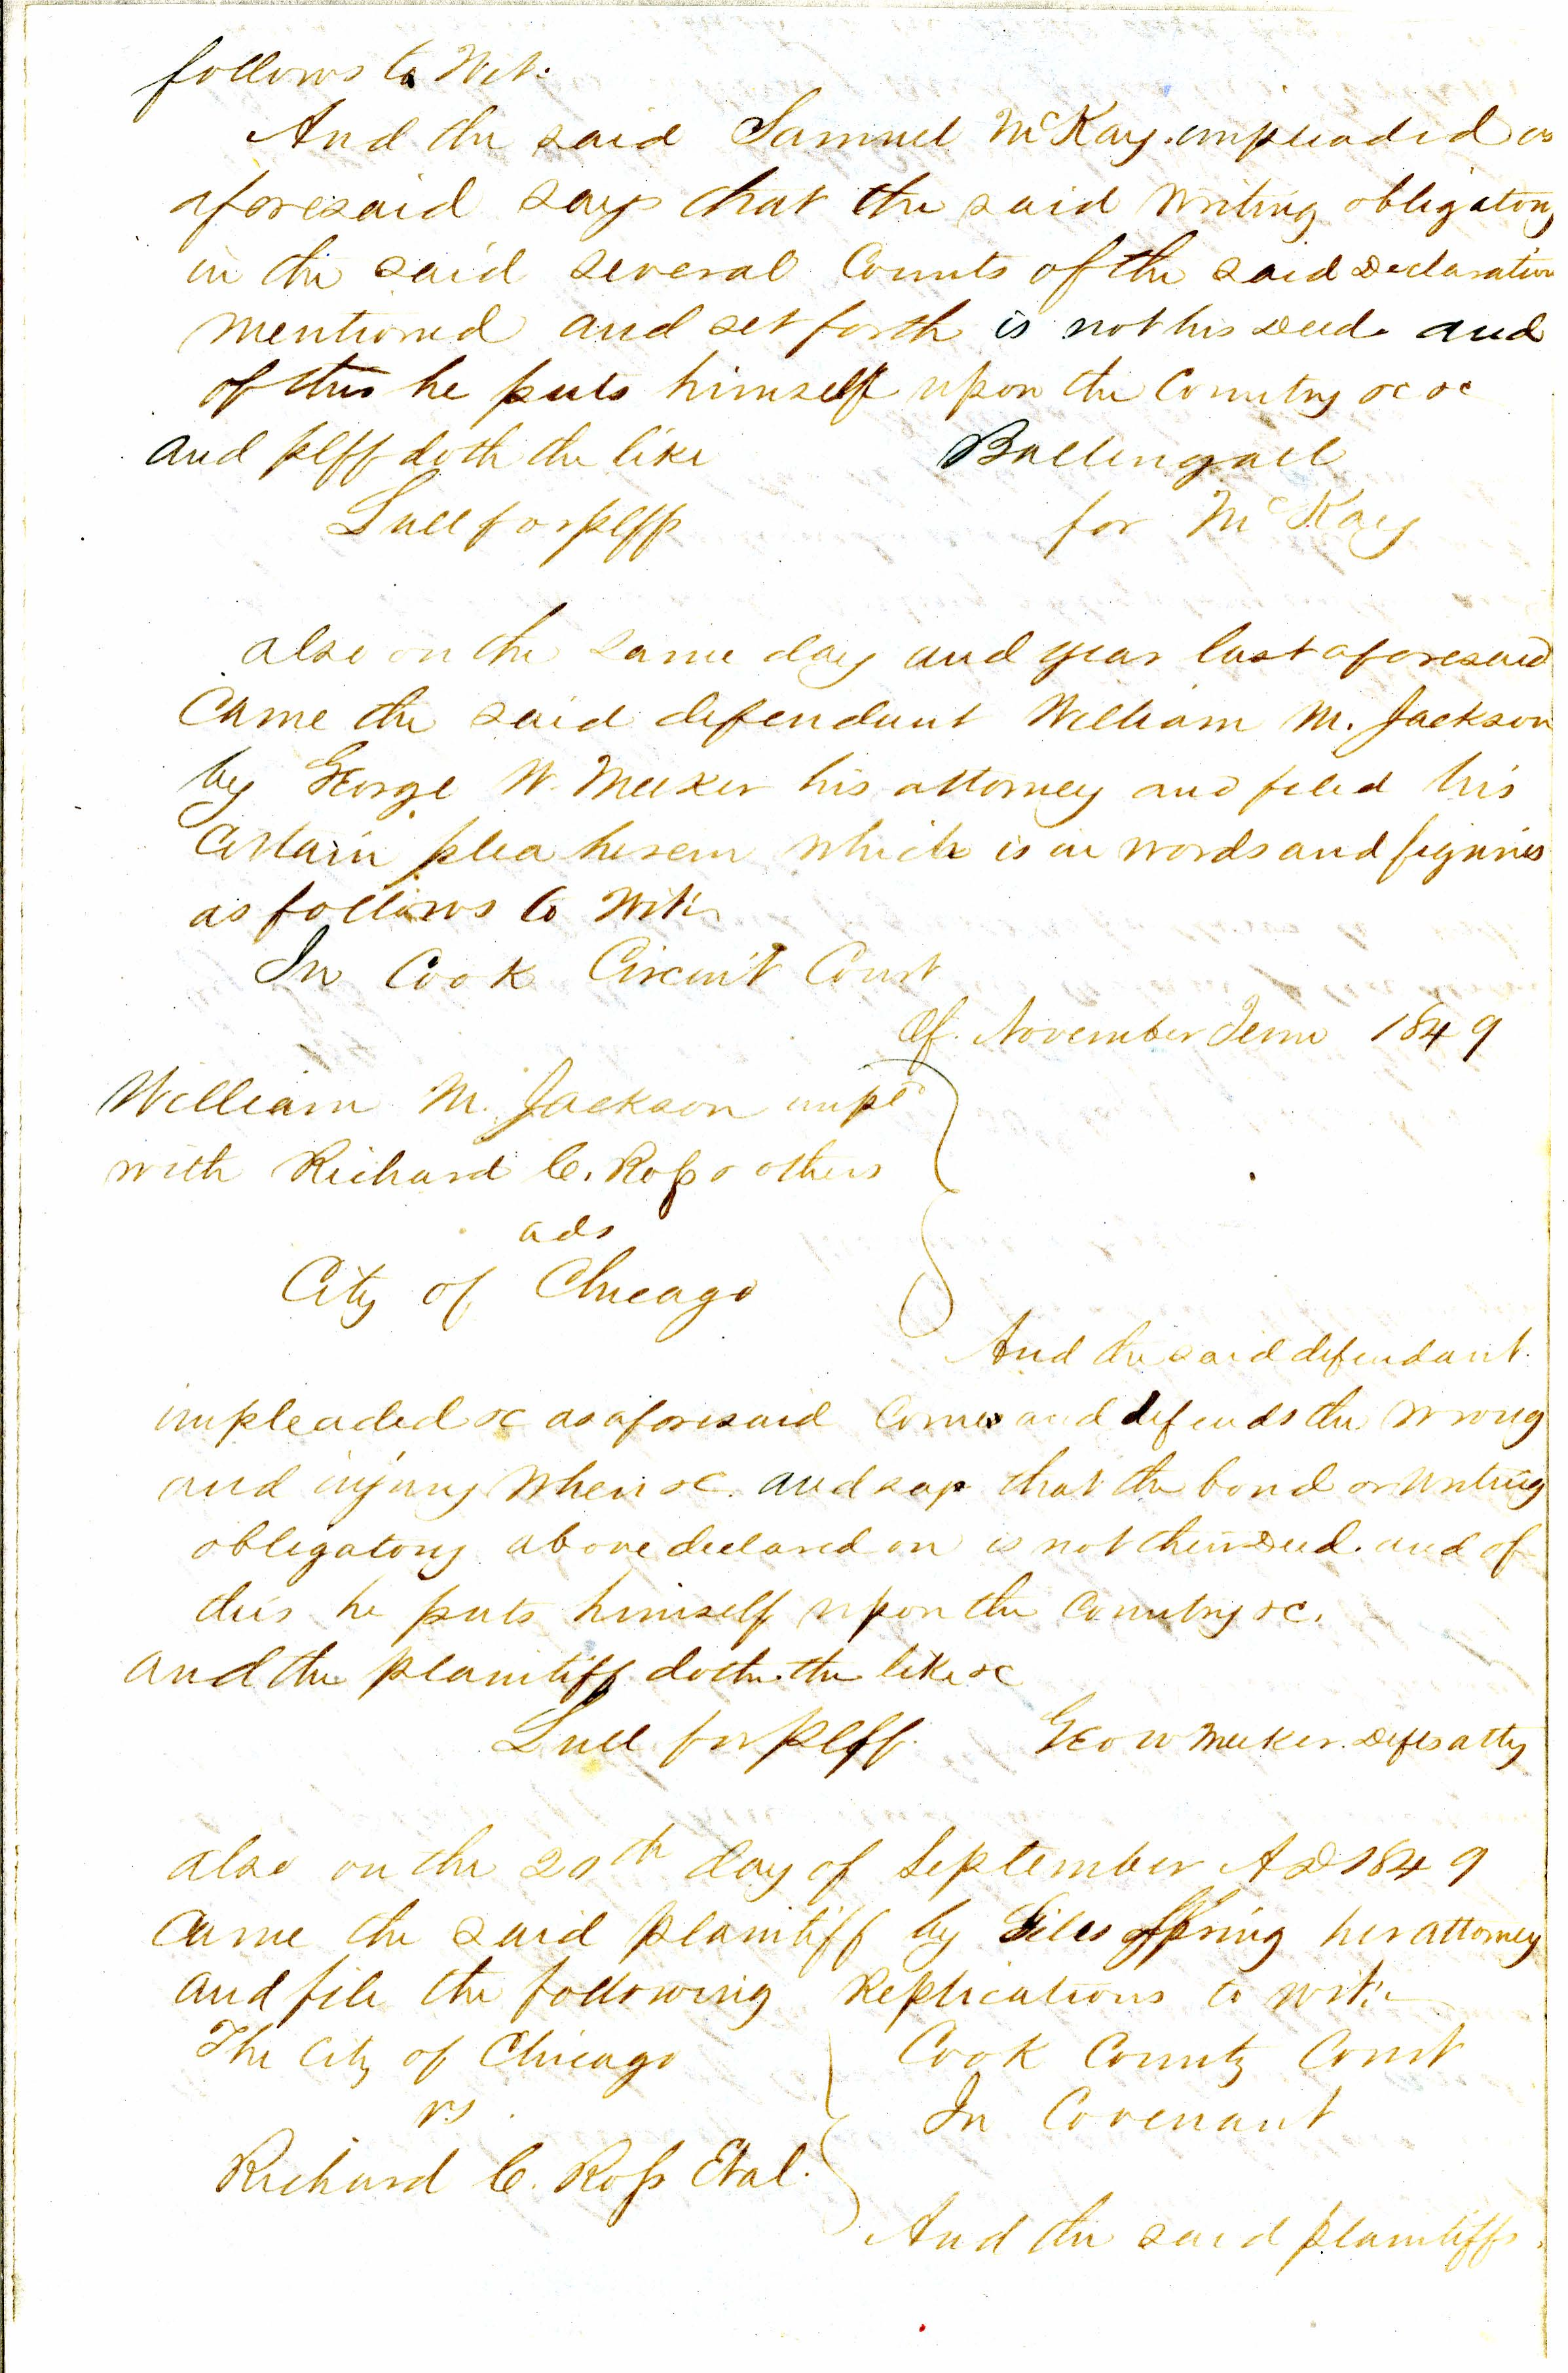 follows to Wit.
And the said Samuel McKay impleaded as
aforesaid says that the said writing obligatory
in the said several Counts of the said Declaration
mentioned and set forth is not his Deed and
of this he puts himself upon the Country &c &c
and plff doth the like Ballingall
Lull for plff for McKay
also on the same day and year last aforesaid
Came the said defendant William M. Jackson
by George W. Meeker his attorney and filed his
Certain plea herein which is in words and figures
as follows to Wit:
In Cook Circuit Court
Of November Term 1849
William M. Jackson impd
with Richard C. Ross & others
ads
City of Chicago
And the said defendant
impleaded &c as aforesaid Comes and defends the wrong
and injury when &c. and says that the bond or writing
obligatory above declared on is not their Deed. and of
this he puts himself upon the Country &c.
and the plaintiff doth the like &c
Lull for plff. Geo W Meeker Defts atty
also on the 20th day of September AD 1849
Came the said plaintiff by Giles Spring her attorney
and file the following Replications to wit:
The City of Chicago Cook County Court
vs. In Covenant
Richard C. Ross Et al.
And the said plaintiffs